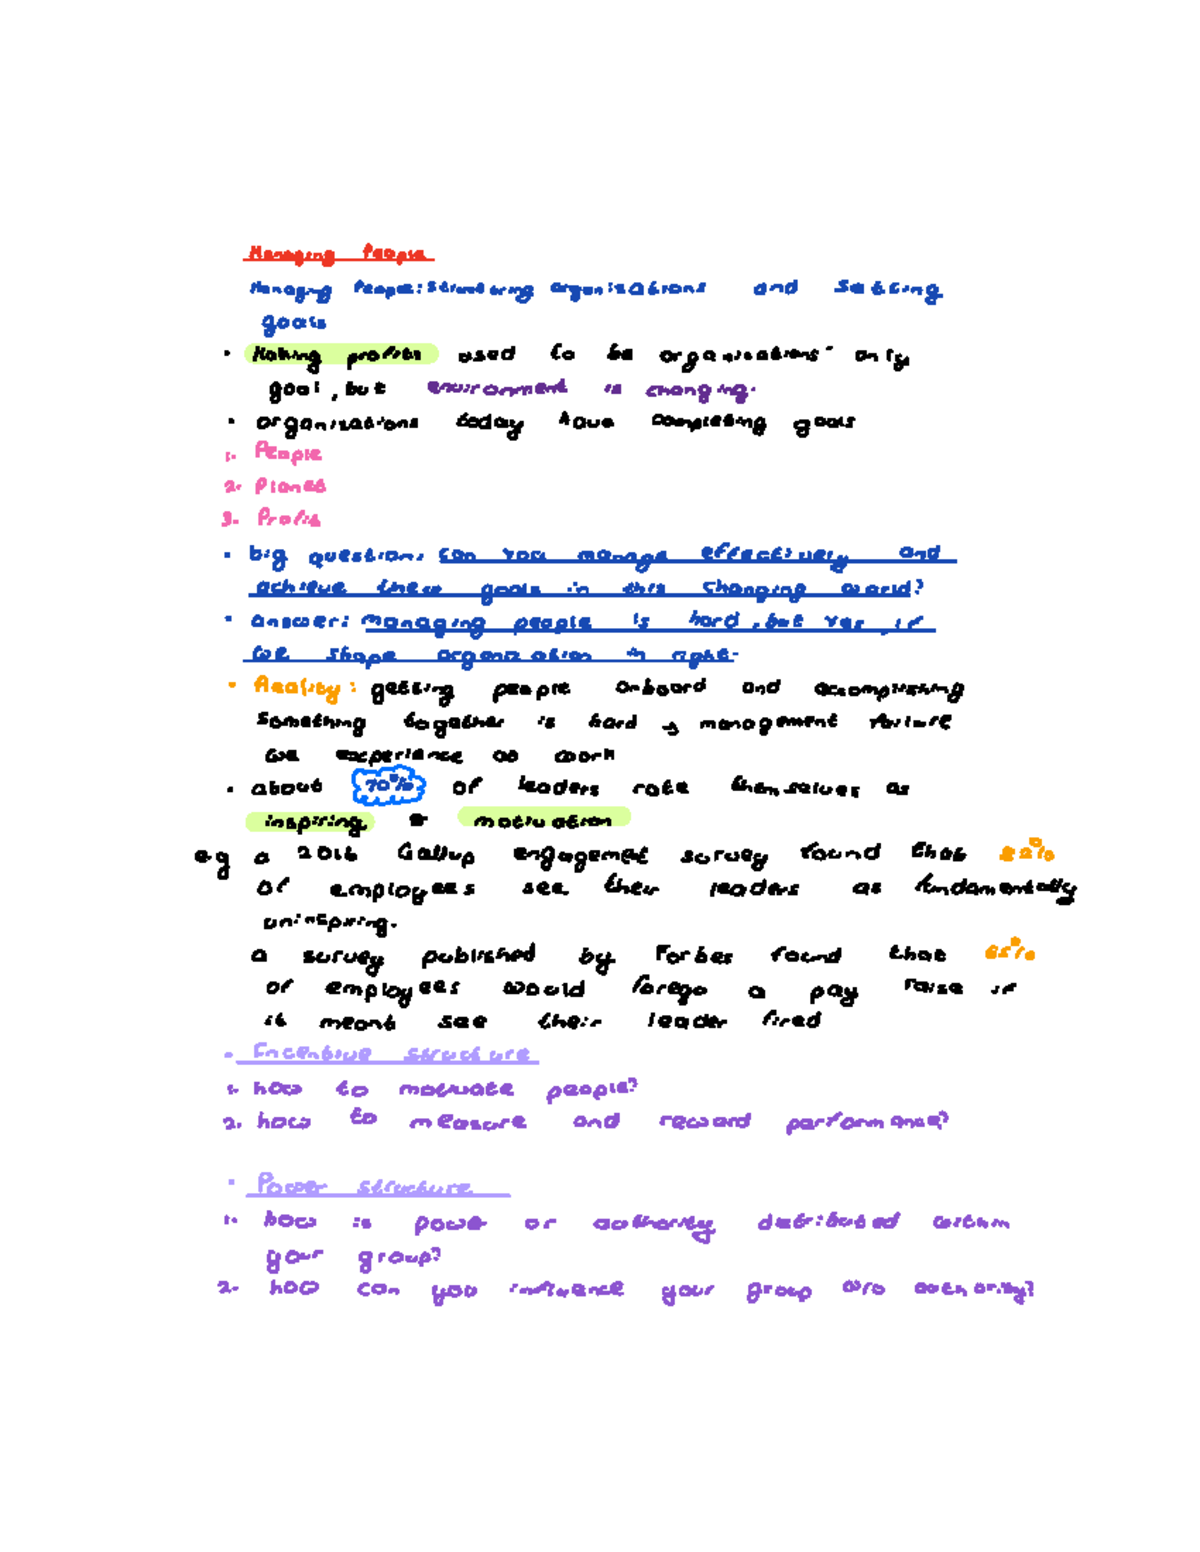 Managing People
Managing People: Structuring organisations and Setting
goals
• Making profits used to be organisations' only
goal, but environment is changing.
• organisations today have competing goals
1. People
2. Planet
3. Profit
• big question: can you manage effectively and
achieve these goals in this changing world?
• answer: managing people is hard, but yes, if
we shape organization in right.
• Reality: getting people onboard and accomplishing
Something together is hard → management failure
we experience as work
• about 70% of leaders rate themselves as
inspiring motivation
e.g a 2016 Gallup engagemet survey found that 82%
of employees see their leaders as fundamentally
uninspiring.
a survey published by Forbes found that 65%
of employees would forego a pay raise if
it meant see their leader fired
• Incentive structure
1. how to motivate people?
2. how to measure and reward performance?
• Power structure
1. how is powe or authority distributed within
your group?
2. how can you influence your group w/o authority?